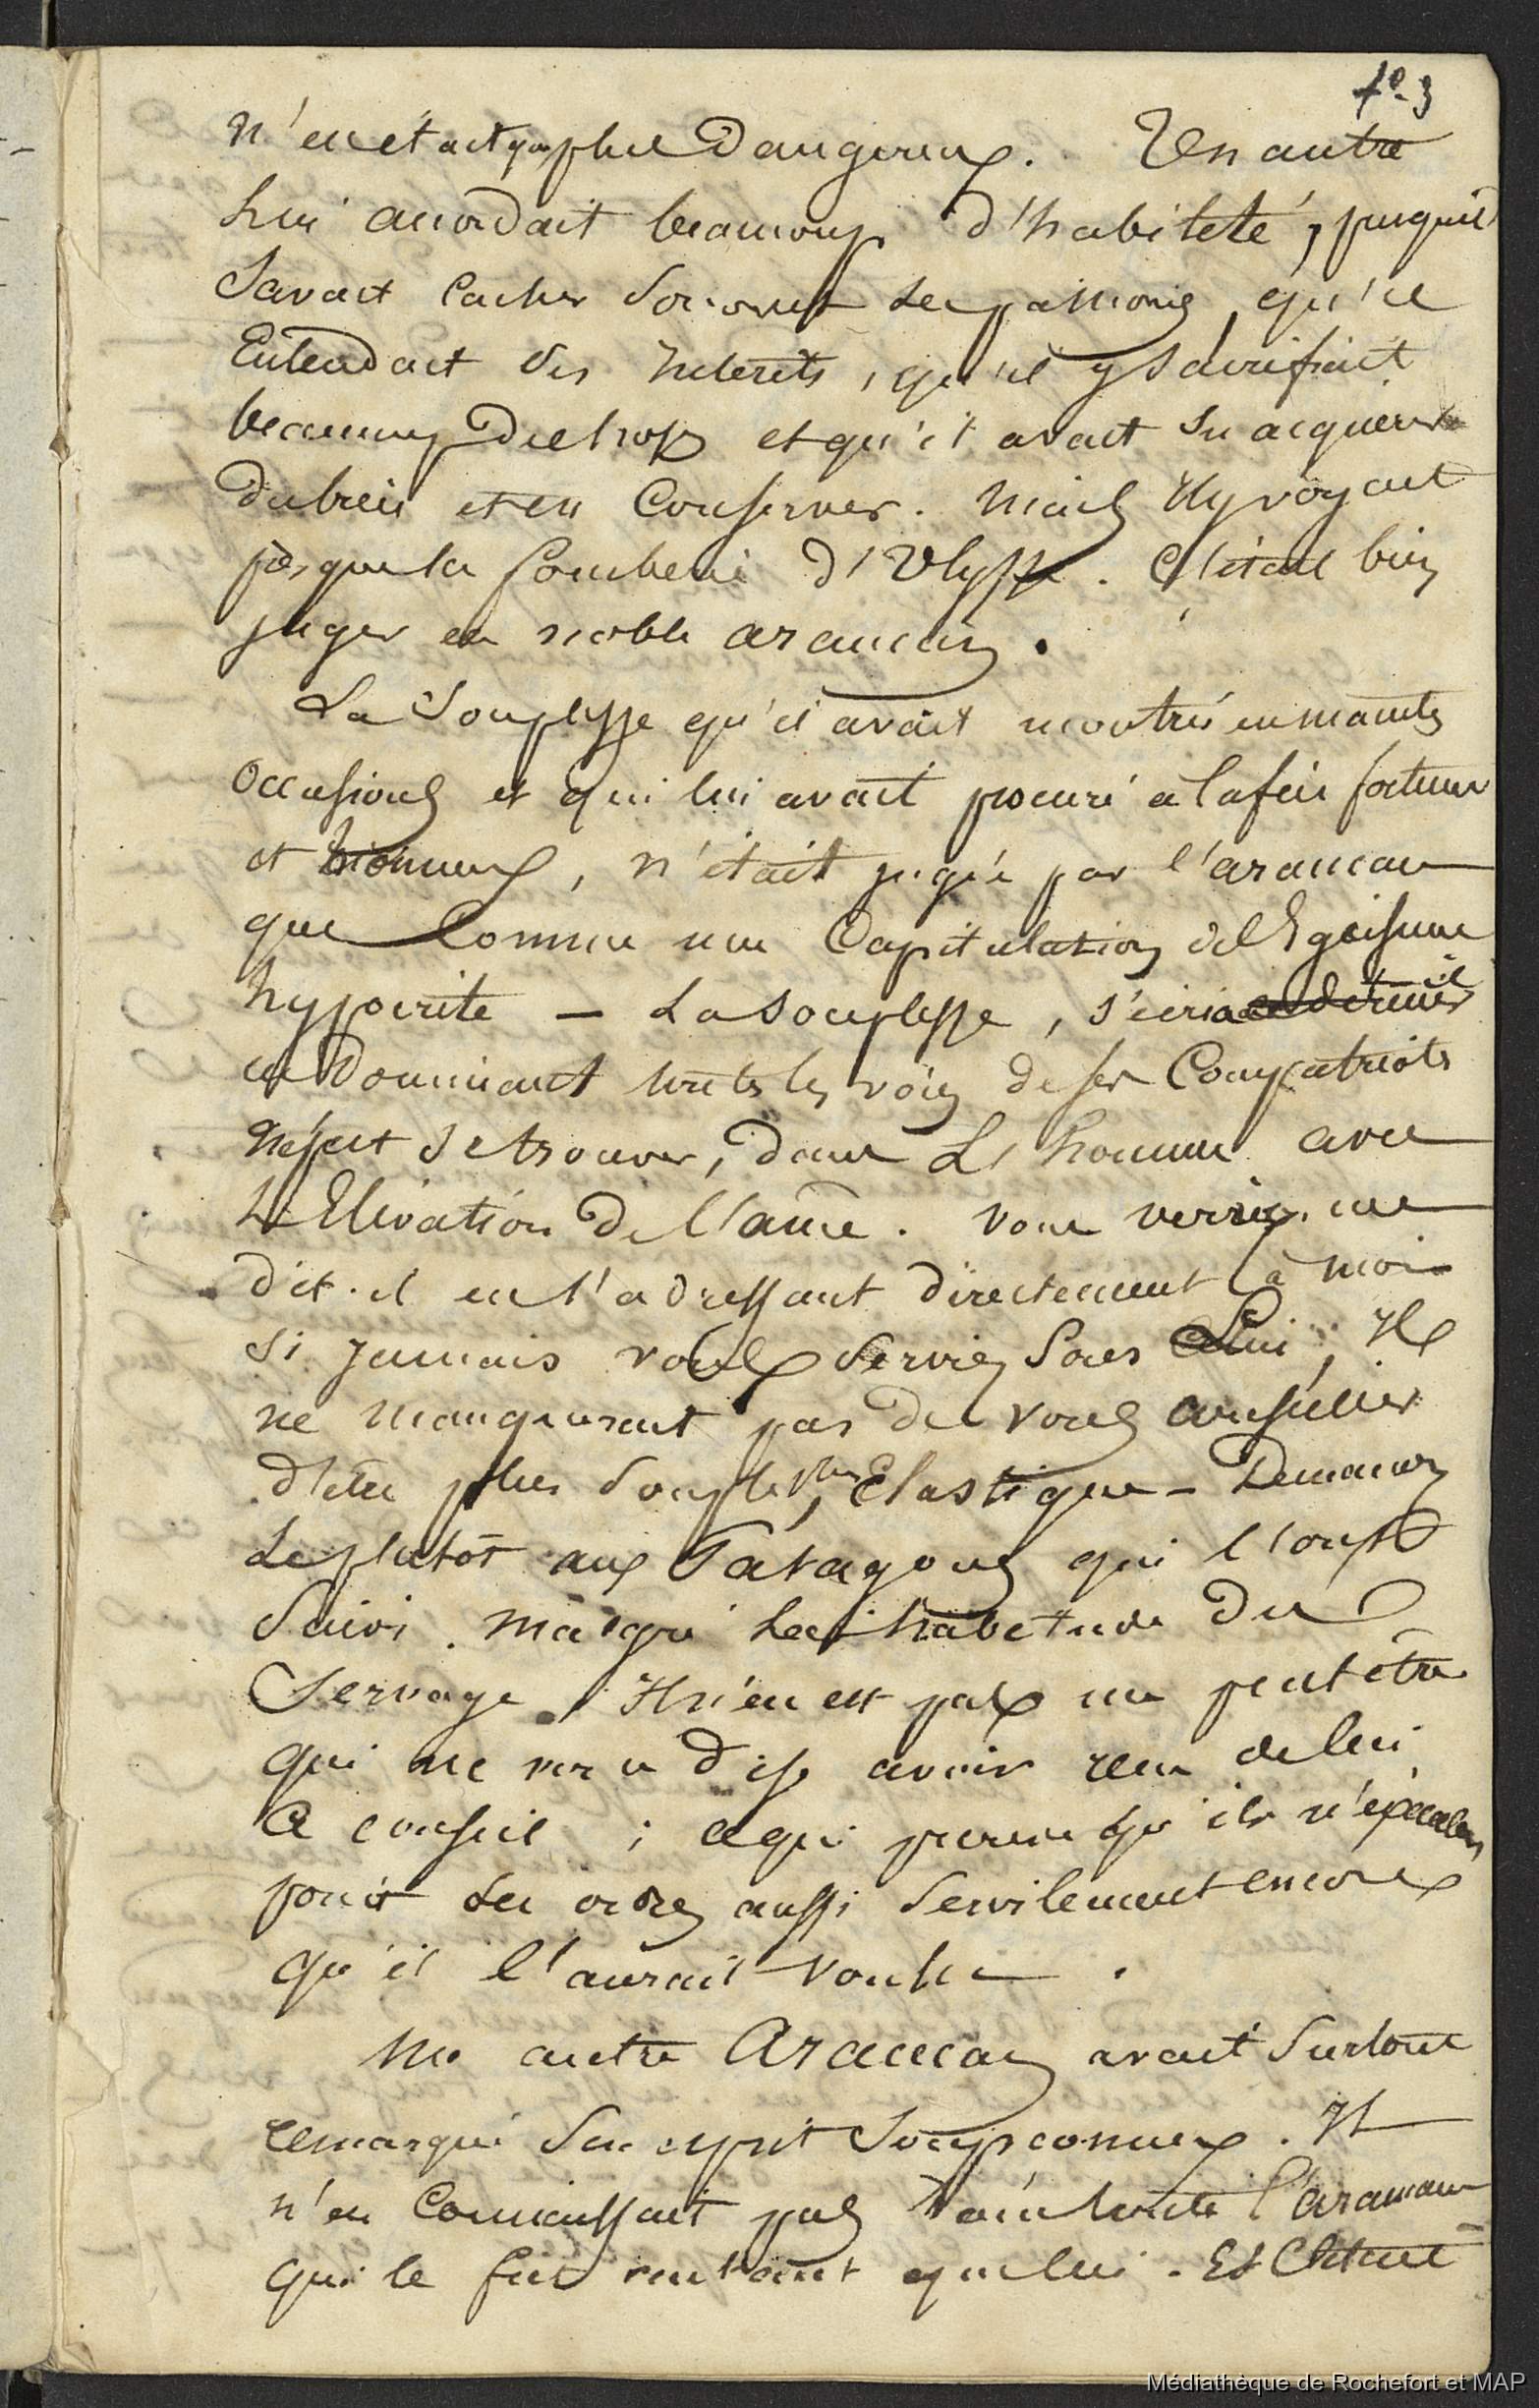 f° 3
n'en était que plus Dangereux. Un autre
lui accordait beaucoup d'habileté, puisqu'il
Savait Cacher souvent ses passions, qu'il
Entendait ses interets, qu'il y Sacrifiait
beaucoup De trop et qu'il avait Su acquerir
du bien et en Conserver. Mais Il y voyait
presque la fourberie d'Ulysse. C'était bien
juger en noble araucan.
La Souplesse qu'il avait montrée en maintes
Occasions et qui lui avait procuré a la fin fortune
et honneurs, n'était jugée par l'araucan
que Comme une Capitulation de l'Egoisme
hypocrite — La Souplesse, s'écria ce dernier il
en Dominant toutes les voix de ses Compatriotes
ne peut se trouver, dans L'homme avec
L'Elévation De l'âme. Vous verriez, me
dit-il en s'adressant directement à moi
Si Jamais vous Serviez Sous Lui, Il
ne manquerait pas De vous conseiller
d'être plus Souple, plus Elastique — Demandez
Le plutôt aux Patagons qui l'ont
Suivi. Malgré Leur habitude Du
Servage, Il n'en est pas un peut être
qui ne vous dise avoir reçu de lui
Ce conseil ; ce qui prouve qu'ils n'éxécutaient
point Ses ordres aussi Servilement encore
qu'il l'aurait voulu.
Un autre Araucan avait Surtout
remarqué Son esprit Soupçonneux. Il
n'en Connaissait pas dans toute l'araucanie
qui le fut autant que lui. Et C'était